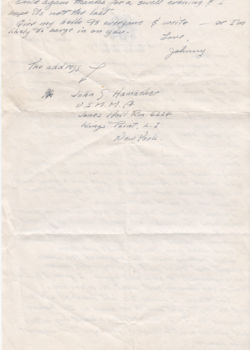 Once again thanks for a swell evening & I
hope its not the last.
Give my hello to everyone & write — or I'm
likely to barge in on you.
Love,
Johnny
The address
John S Hamacher
U.S.M.M.A
Jones Hall Rm
Kings Point, L.I
New York.